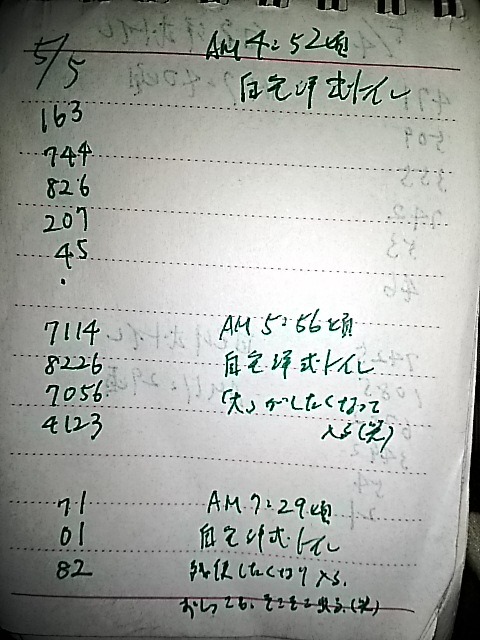 5/5 AM 4:52頃
自宅洋式トイレ
163
744
826
207
45
・
7114 AM 5:56頃
8226 自宅洋式トイレ
7056 「大」がしたくなって
4123 入る(笑)
71 AM 7:29頃
01 自宅洋式トイレ
82 したくなり入る。
(笑)